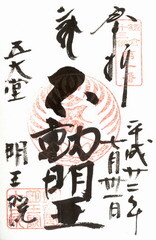 奉拝
平成廿二年
七月廿一日
不動明王
五大堂
明王院